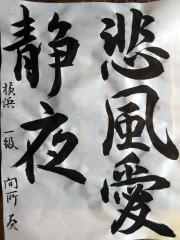 悲風愛
静夜
横浜 一級 間所 葵